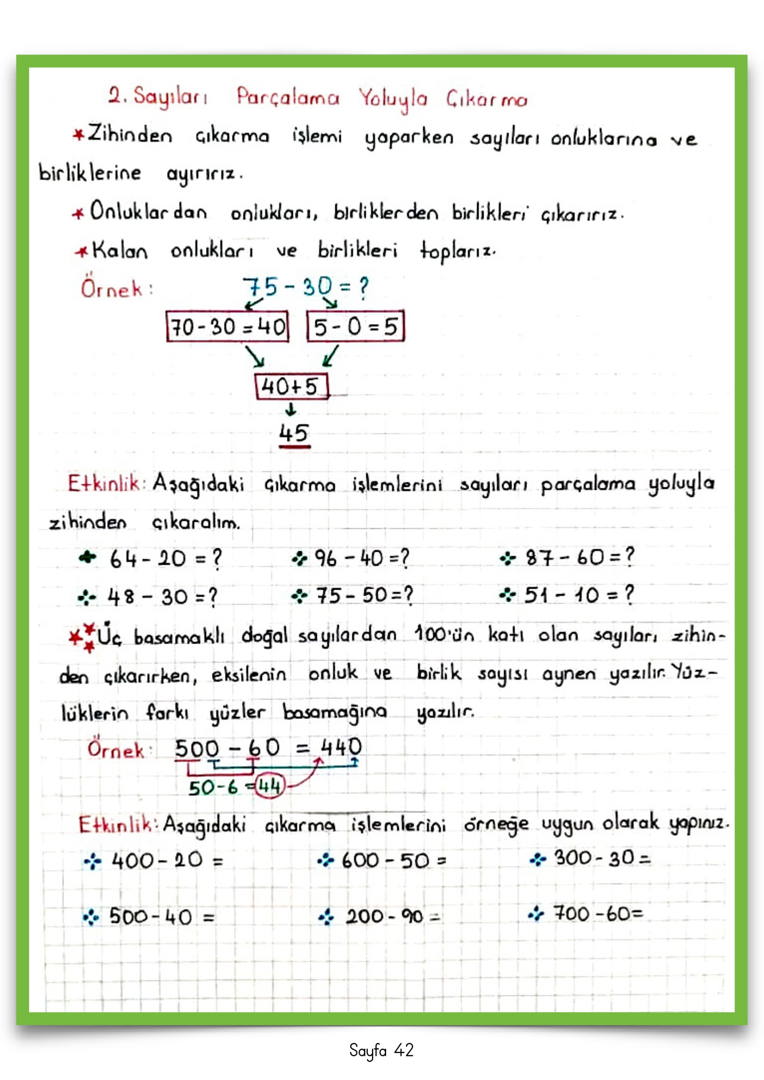 2. Sayıları Parçalama Yoluyla Çıkarma
*Zihinden çıkarma işlemi yaparken sayıları onluklarına ve
birliklerine ayırırız.
*Onluklardan onlukları, birliklerden birlikleri çıkarırız.
*Kalan onlukları ve birlikleri toplarız.
Örnek: 75-30=?
70-30=40 5-0=5
40+5
45
Etkinlik: Aşağıdaki çıkarma işlemlerini sayıları parçalama yoluyla
zihinden çıkaralım.
64-20=? 96-40=? 87-60=?
48-30=? 75-50=? 51-10=?
***Üç basamaklı doğal sayılardan 100'ün katı olan sayıları zihin-
den çıkarırken, eksilenin onluk ve birlik sayısı aynen yazılır. Yüz-
lüklerin farkı yüzler basamağına yazılır.
Örnek: 500-60=440
50-6=44
Etkinlik: Aşağıdaki çıkarma işlemlerini örneğe uygun olarak yapınız.
400-20= 600-50= 300-30=
500-40= 200-90= 700-60=
Sayfa 42